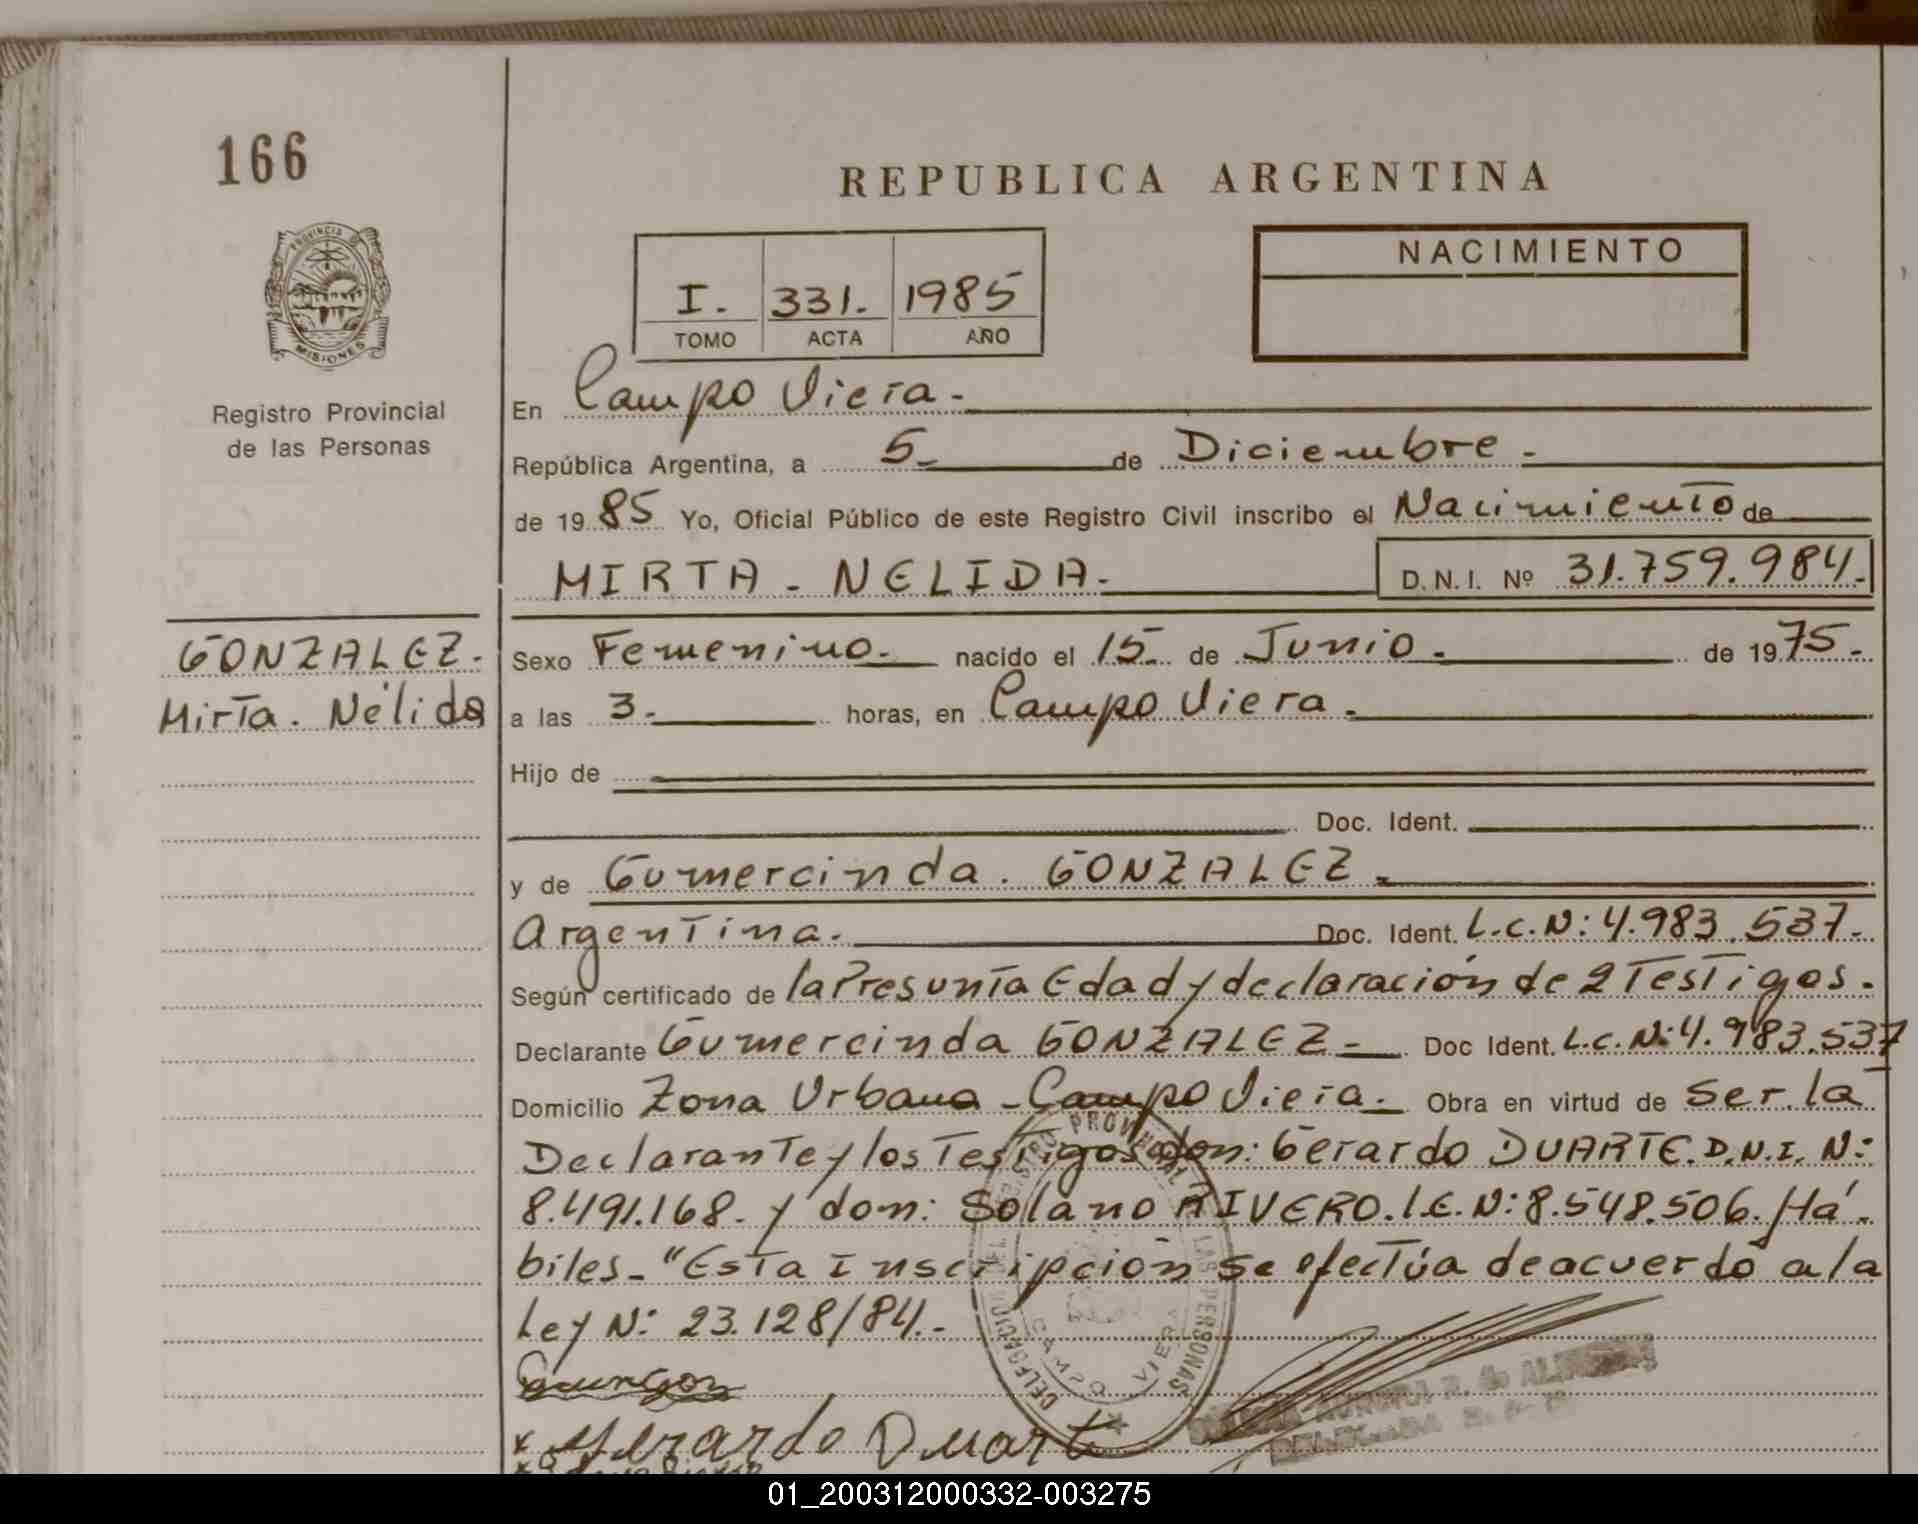 166
REPUBLICA ARGENTINA
PROVINCIA DE
MISIONES
Registro Provincial
de las Personas
I. 331. 1985
TOMO ACTA AÑO
NACIMIENTO
En Campo Viera.
República Argentina, a 5 de Diciembre.
de 1985 Yo, Oficial Público de este Registro Civil inscribo el Nacimiento de
MIRTA - NELIDA. D.N.I. Nº 31.759.984.
GONZALEZ.
Mirta. Nélida
Sexo Femenino. nacido el 15 de Junio. de 1975.
a las 3. horas, en Campo Viera.
Hijo de
Doc. Ident.
y de Gumercinda. GONZALEZ.
Argentina. Doc. Ident. L.C.N: 4.983.537.
Según certificado de la Presunta Edad y declaración de 2 Testigos.
Declarante Gumercinda GONZALEZ - Doc Ident. L.C.N: 4.983.537
Domicilio Zona Urbana - Campo Viera. Obra en virtud de ser la
Declarante y los Testigos don: Gerardo DUARTE. D.N.I. N:
8.491.168. y don: Solano RIVERO. L.E.N: 8.548.506. Há-
biles. "Esta Inscripción se efectúa de acuerdo a la
Ley N: 23.128/84.-
DELEGACION DEL REGISTRO PROVINCIAL DE LAS PERSONAS
CAMPO VIERA
x Gerardo Duarte
01_200312000332-003275